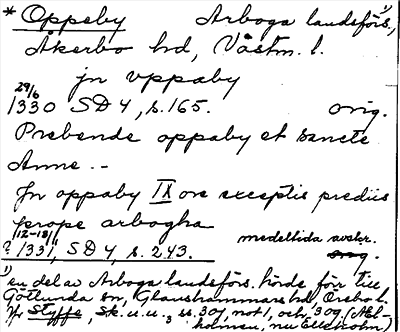 * Oppeby Arboga landsförs. 1),
Åkerbo hd, Västm. l.
jn vppaby
29/6
1330 SD 4, s. 165. orig.
Prebende oppaby et sancte
Anne.-
Jn oppaby IX ore exceptis prediis
prope arbogha
12-13/11
? 1331, SD 4, s. 243. medeltida avskr.
1) en del av Arboga landsförs. hörde förr till
Götlunda sn, Glanshammars hd, Örebro l.
Jfr Styffe, Sk. u. u.3 ss. 301, not 1, och 309 (Æl-
holmen, nu Ellholm)